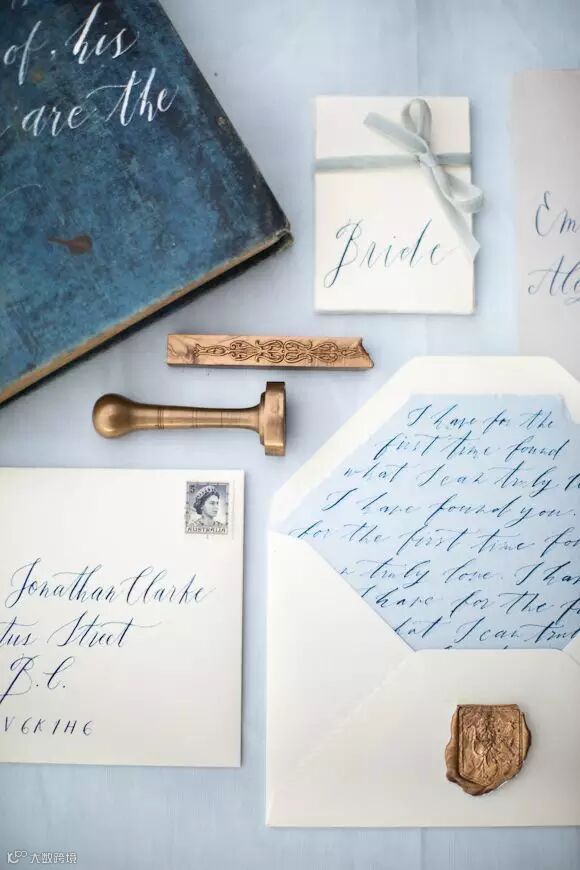 of his
are the
Bride
Em
5
AUSTRALIA
Jonathan Clarke
tus Street
B.C.
V6K1H6
I have for the
first time found
what I can truly lo
I have found you.
for the first time fou
n truly love. I hav
I have for the fi
hat I can trul
大数跨境